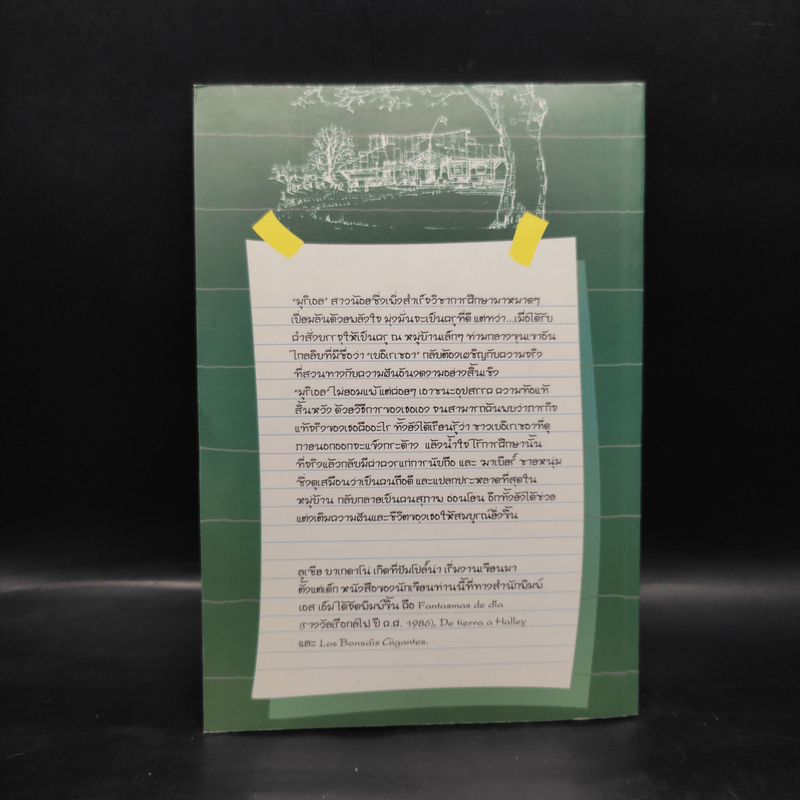 "มูริเอล" สาวน้อยซึ่งเพิ่งสำเร็จวิชาการศึกษามาหมาดๆ
เปี่ยมล้นด้วยพลังใจ มุ่งมั่นจะเป็นครูที่ดี แต่ทว่า...เมื่อได้รับ
คำสั่งบรรจุให้เป็นครู ณ หมู่บ้านเล็กๆ ท่ามกลางขุนเขาอัน
ไกลลิบที่มีชื่อว่า "เบอิเรเชอา" กลับต้องเผชิญกับความจริง
ที่สวนทางกับความฝันอันงดงามอย่างสิ้นเชิง
"มูริเอล" ไม่ยอมแพ้ แต่ค่อยๆ เอาชนะอุปสรรค ความท้อแท้
สิ้นหวัง ด้วยวิธีการของเธอเอง จนสามารถค้นพบว่าภารกิจ
แท้จริงของเธอคืออะไร ทั้งยังได้เรียนรู้ว่า ชาวเบอิเรเชอาที่ดู
ภายนอกออกจะแข็งกระด้าง แล้งน้ำใจ ไร้การศึกษานั้น
ที่จริงแล้วกลับมีค่าควรแก่การนับถือ และ ฆาเบียร์ ชายหนุ่ม
ซึ่งดูเสมือนว่าเป็นคนถือดี และแปลกประหลาดที่สุดใน
หมู่บ้าน กลับกลายเป็นคนสุภาพ อ่อนโยน อีกทั้งยังได้ช่วย
แต่งเติมความฝันและชีวิตของเธอให้สมบูรณ์ยิ่งขึ้น
ลูเซีย บาเกดาโน่ เกิดที่ปัมโปล์น่า เริ่มงานเขียนมา
ตั้งแต่เด็ก หนังสือของนักเขียนท่านนี้ที่ทางสำนักพิมพ์
เอส เอ็ม ได้จัดพิมพ์ขึ้น คือ Fantasmas de día
(รางวัลเรือกลไฟ ปี ค.ศ. 1986), De tierra a Halley
และ Los Bonsáis Gigantes.